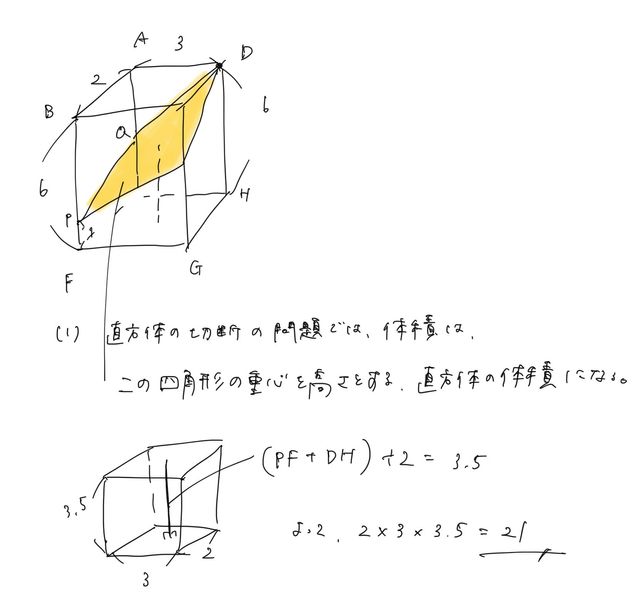 A 3 D
2
B
Q
6
6
P
1
H
F
G
(1) 直方体の切断の問題では、体積は、
この四角形の重心を高さとする、直方体の体積になる。
(PF + DH) ÷ 2 = 3.5
3.5
よって、2 × 3 × 3.5 = 21
2
3